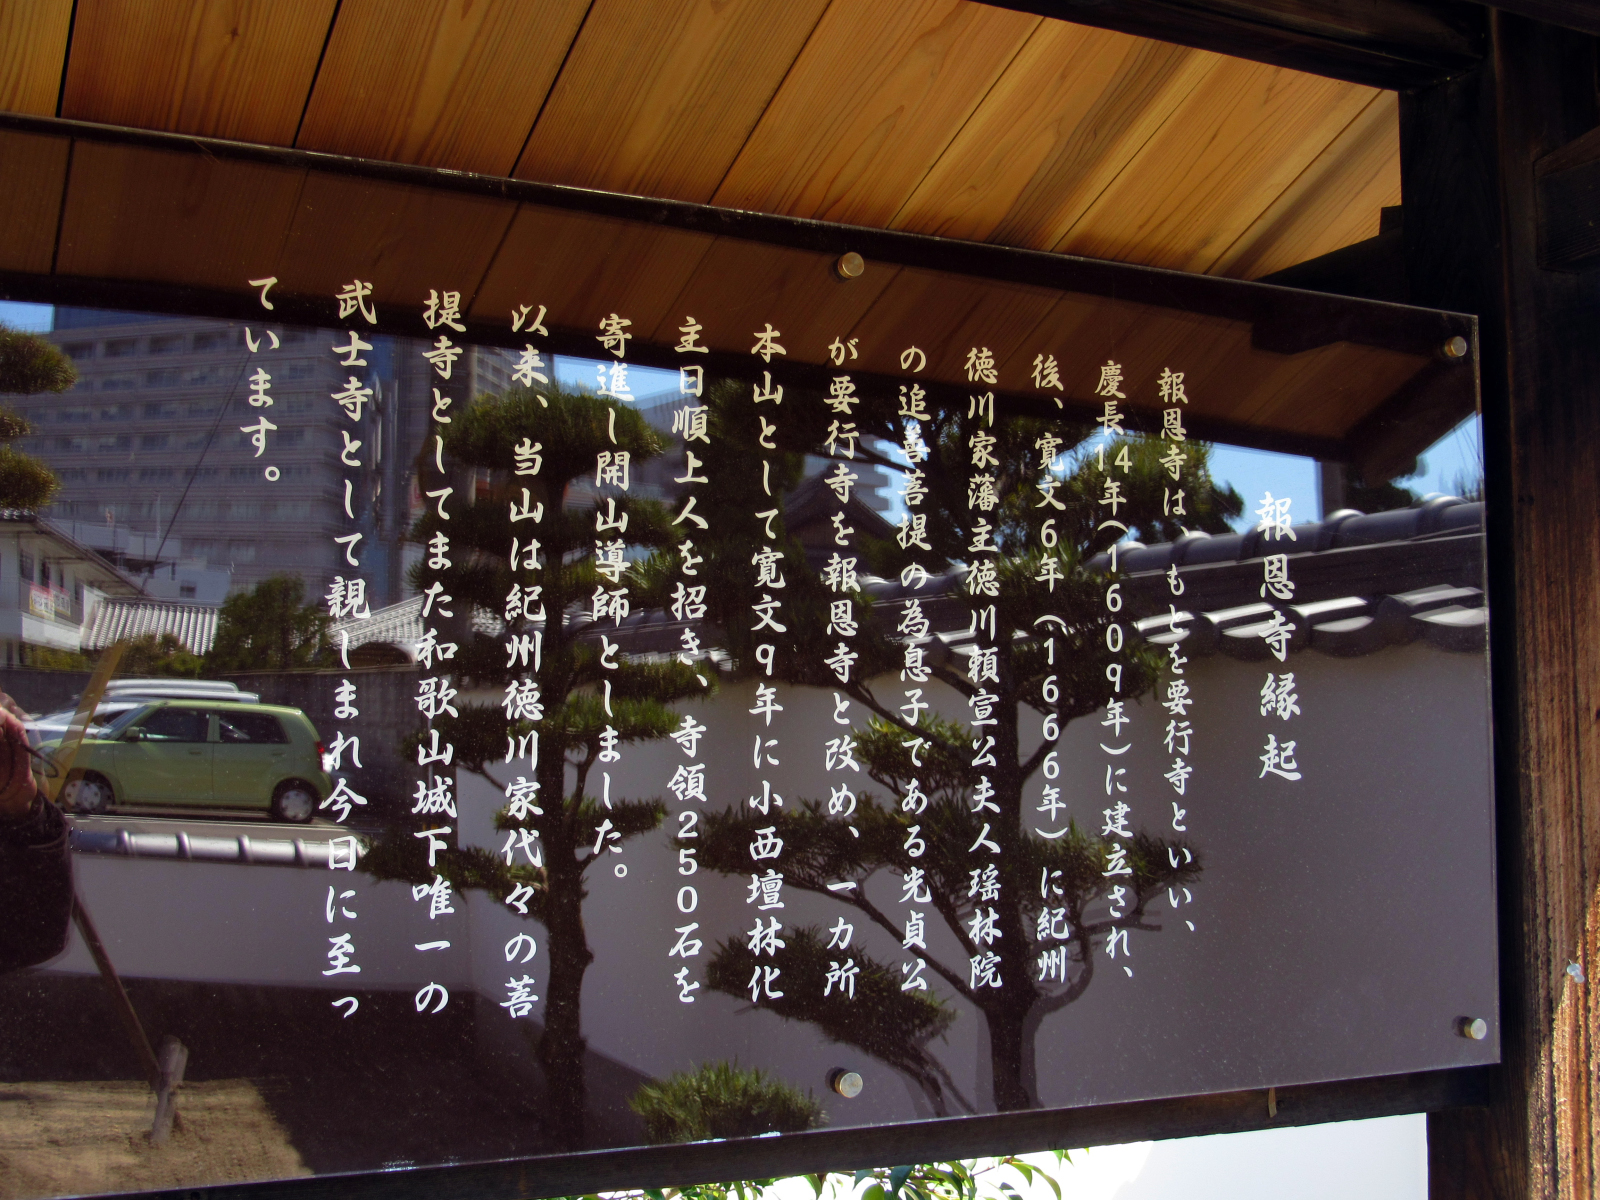 報恩寺縁起
報恩寺は、もとを要行寺といい、
慶長14年(1609年)に建立され、
後、寛文6年(1666年)に紀州
徳川家藩主徳川頼宣公夫人瑶林院
の追善菩提の為息子である光貞公
が要行寺を報恩寺と改め、一カ所
本山として寛文9年に小西壇林化
主日順上人を招き、寺領250石を
寄進し開山導師としました。
以来、当山は紀州徳川家代々の菩
提寺としてまた和歌山城下唯一の
武士寺として親しまれ今日に至っ
ています。